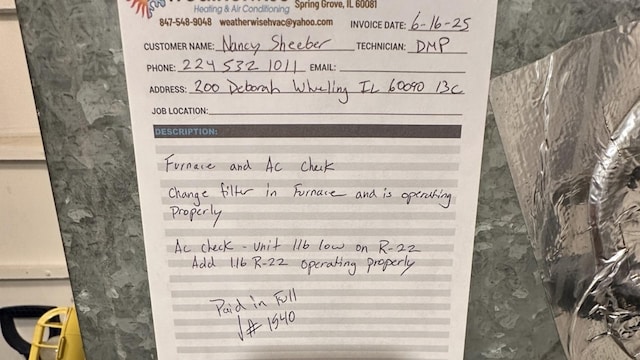 Heating & Air Conditioning
Spring Grove, IL 60081
847-548-9048 weatherwisehvac@yahoo.com
INVOICE DATE: 6-16-25
CUSTOMER NAME: Nancy Sheeber TECHNICIAN: DMP
PHONE: 224 532 1011 EMAIL:
ADDRESS: 200 Deborah Wheeling IL 60090 13C
JOB LOCATION:
DESCRIPTION:
Furnace and Ac Check
Change filter in Furnace and is operating
Properly
Ac check - Unit 1lb low on R-22
Add 1lb R-22 operating properly
Paid in Full
√# 1540